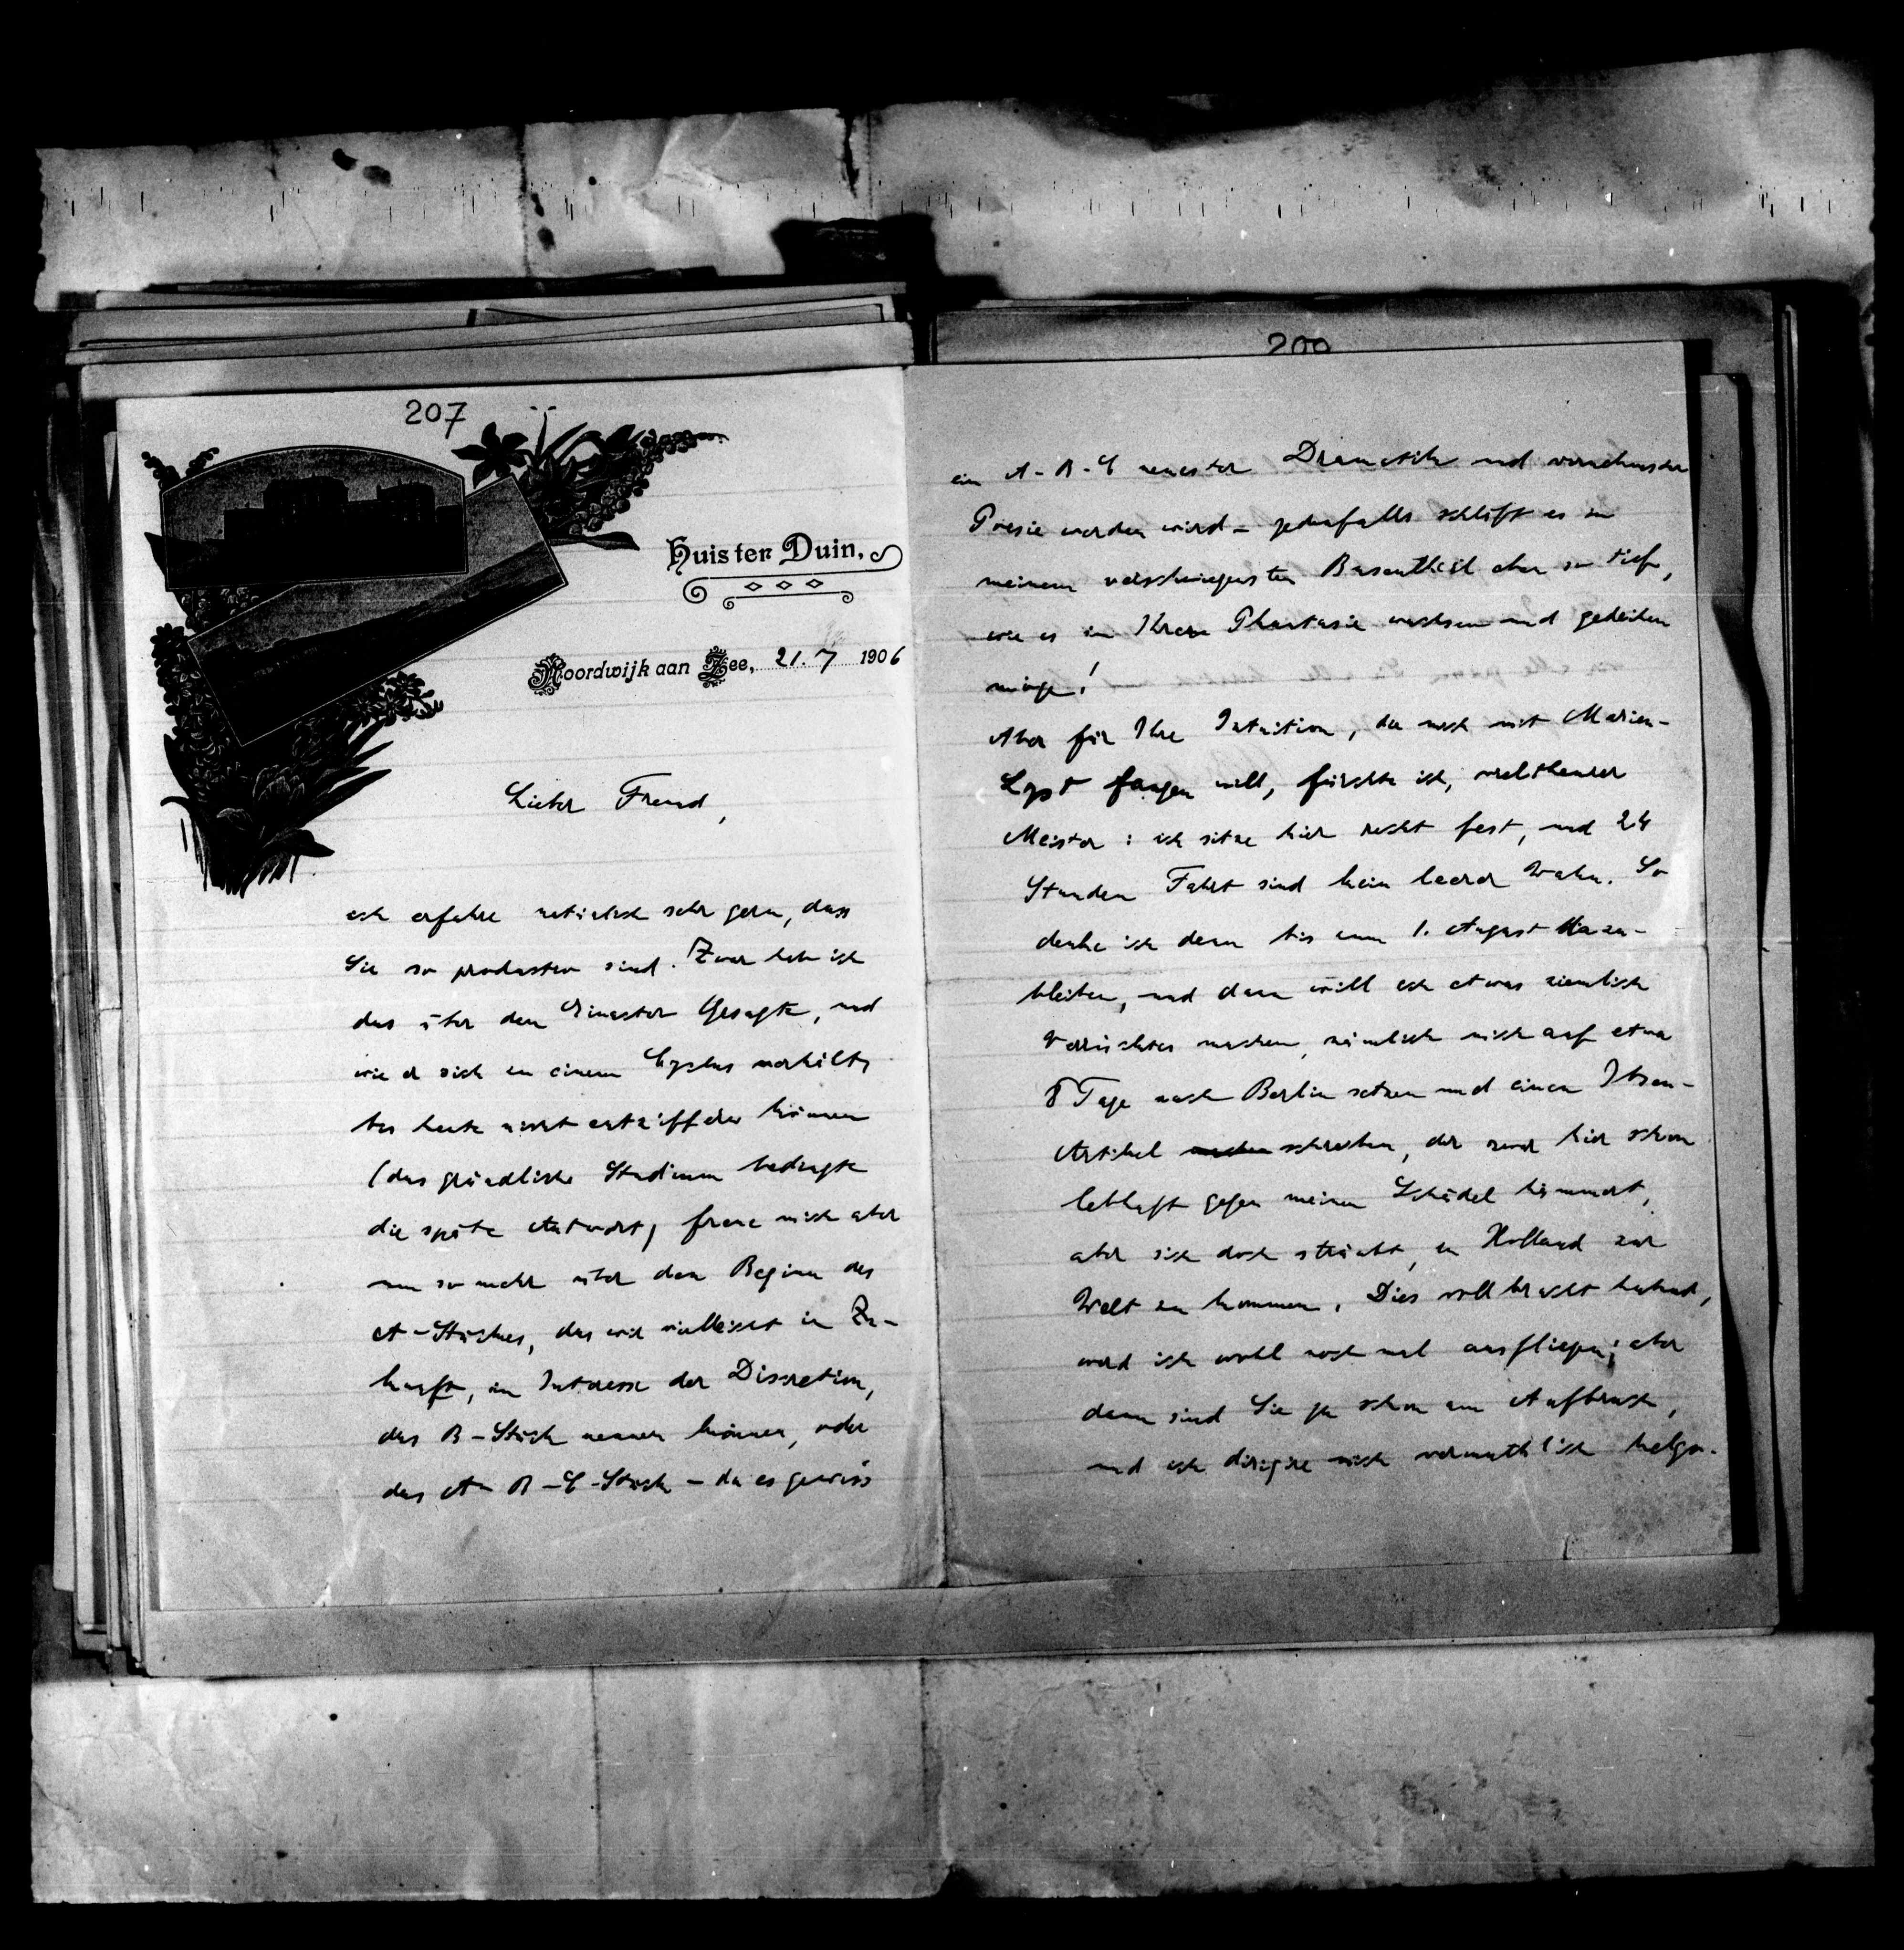 207
Huis ter Duin.
Noordwijk aan Zee, 21. 7 1906
Lieber Freund,
ich erfahre natürlich sehr gern, dass
Sie so productiv sind. Zwar hab ich
das über den Einacter Gesagte, und
wie er sich zu einem Cyclus verhält,
bis heute nicht entziffern können
(das gründliche Studium bedingte
die späte Antwort), freue mich aber
um so mehr über den Beginn des
A-Stückes, das wir vielleicht in Zu-
kunft, im Interesse der Discretion,
das B-Stück nennen können, oder
das A-B-C-Stück – da es gewiss
200
ein A-B-C neuester Dramatik und vornehmster
Poesie werden wird – jedenfalls schläft es in
meinem verschwiegensten Busen eben so tief,
wie es in Ihrer Phantasie wachsen und gedeihen
möge!
Aber für Ihre Intuition, die mich mit Marien-
Lyst fangen will, fürchte ich, vieltheurer
Meister: ich sitze hier recht fest, und 24
Stunden Fahrt sind kein leerer Wahn. So
denke ich denn bis zum 1. August dazu-
bleiben, und dann will ich etwas ziemlich
Verrücktes machen, nämlich mich auf etwa
8 Tage nach Berlin setzen und einen Ibsen-
Artikel schreiben, der zwar hier schon
lebhaft gegen meinen Schädel hämmert,
aber sich doch sträubt, in Holland zur
Welt zu kommen. Dies vollbracht habend,
werd ich wohl noch mal ausfliegen; aber
dann sind Sie ja schon am Aufbruch,
und ich dirigire mich vermuthlich belgo-